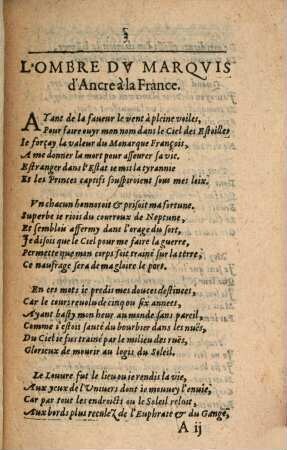 3
L'OMBRE DV MARQVIS
d'Ancre à la France.
AYant de la faueur le vent à pleine voiles,
Pour faire ouyr mon nom dans le Ciel des Estoilles
Ie forçay la valeur du Monarque François,
A me donner la mort pour asseurer sa vie.
Estranger dans l'Estat ie mis la tyrannie
Et les Princes captifs souspiroient sous mes loix.
Vn chacun honnoroit & prisoit ma fortune,
Superbe ie riois du courroux de Neptune,
Et semblois affermy dans l'orage du sort,
Ie disois que le Ciel pour me faire la guerre,
Permette que mon corps soit trainé sur la terre,
Ce naufrage sera de ma gloire le port.
En ces mots ie predis mes douces destinees,
Car le cours reuolu de cinq ou six annees,
Ayant basty mon heur au monde sans pareil,
Comme i'estois sauté du bourbier dans les nuës,
Du Ciel ie fus trainé par le milieu des ruës,
Glorieux de mourir au logis du Soleil.
Le Louure fut le lieu ou ie rendis la vie,
Aux yeux de l'Vniuers dont ie mouuoy l'enuie,
Car par tout les endroicts ou le Soleil reloit,
Aux bords plus reculez de l'Euphrate & du Gange,
A ij